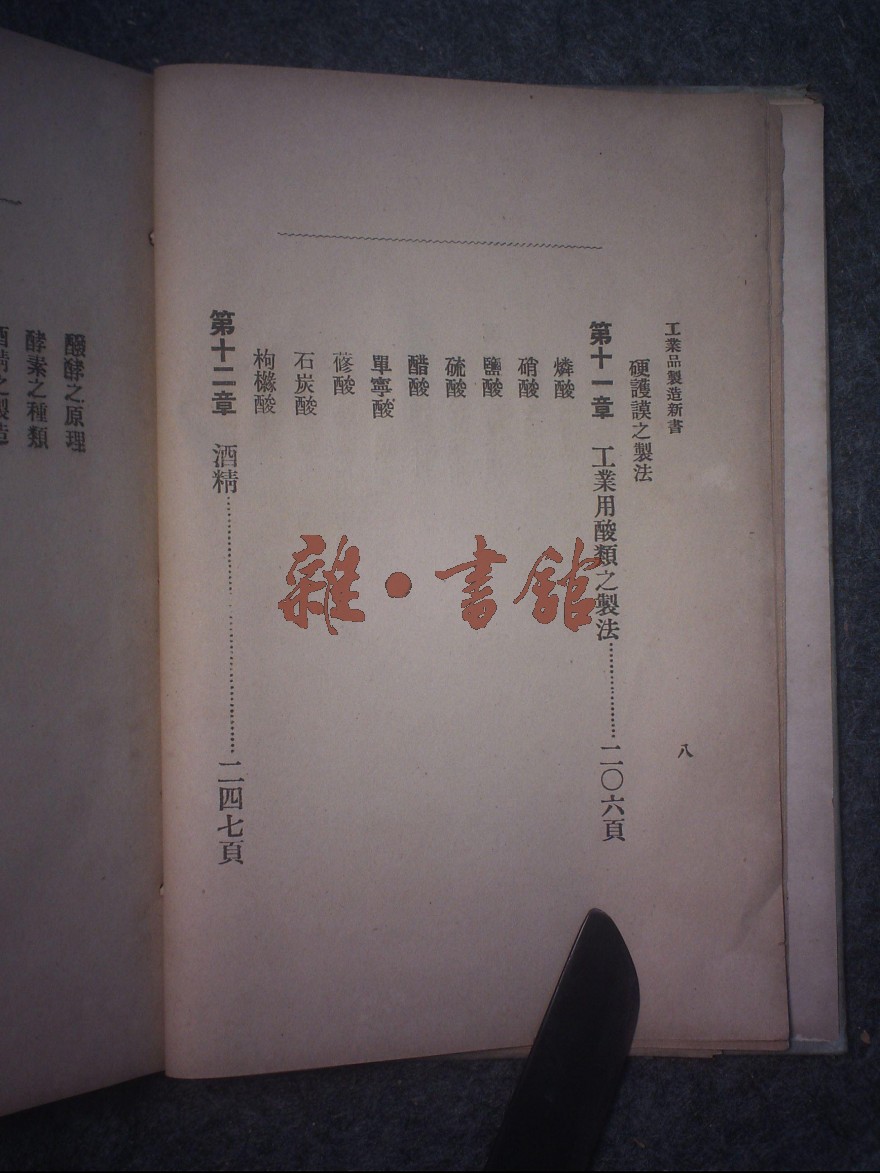 工業品製造新書
八
硬護謨之製法
第十一章 工業用酸類之製法……………二〇六頁
燐酸
硝酸
鹽酸
硫酸
醋酸
單寧酸
蓚酸
石炭酸
枸櫞酸
第十二章 酒精……………二四七頁
醱酵之原理
酵素之種類
酒精之製造
雜·書館